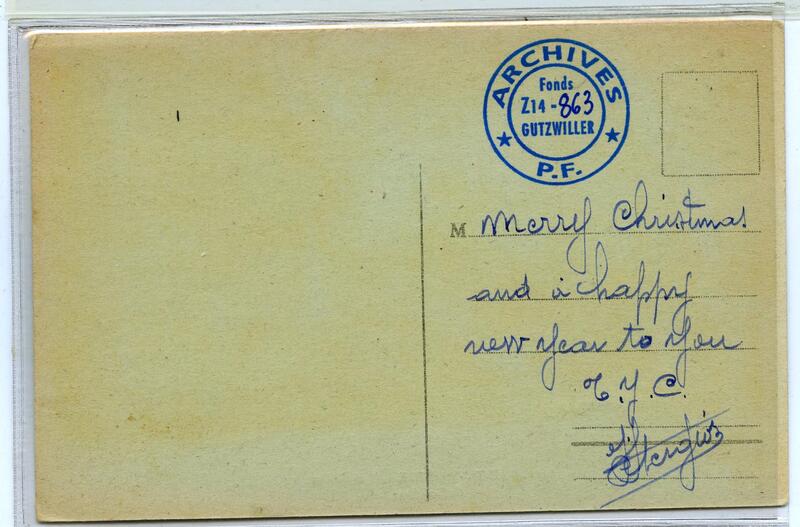 ARCHIVES
Fonds
Z14-863
GUTZWILLER
P.F.
M Merry Christmas
and a happy
new year to you